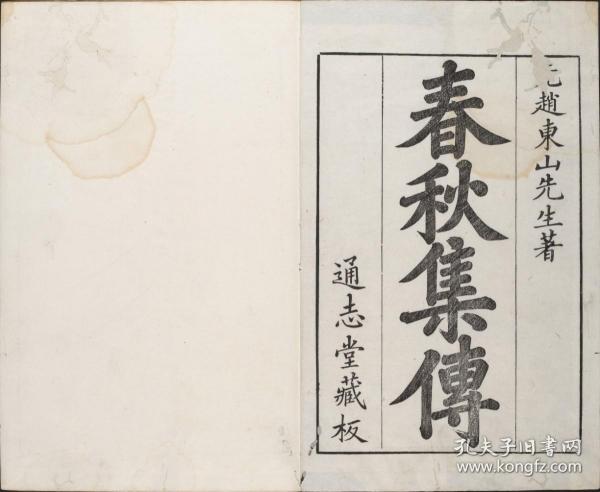 元趙東山先生著
春秋集傳
通志堂藏板
孔夫子旧书网
www.kongfz.com